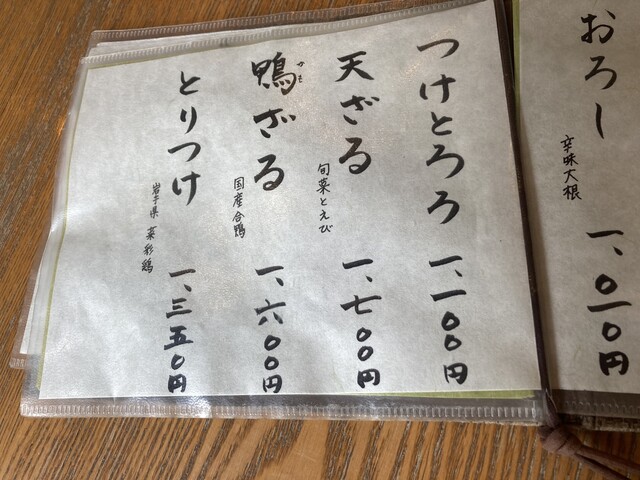 おろし
辛味大根
一、〇一〇円
つけとろろ
一、一〇〇円
天ざる
旬菜とえび
一、七〇〇円
鴨ざる
かも
国産合鴨
一、六〇〇円
とりつけ
岩手県 菜彩鶏
一、三五〇円